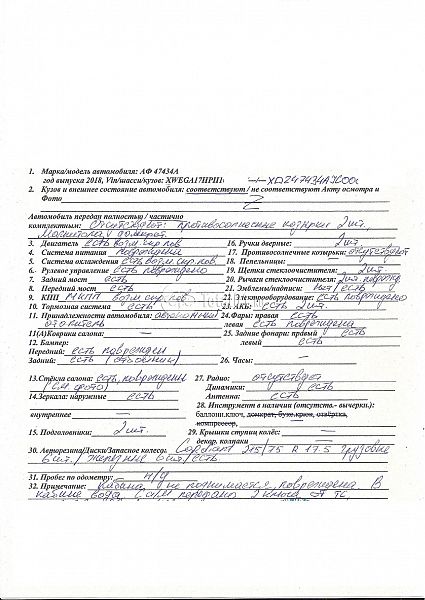 1. Марка/модель автомобиля: АФ 47434А
год выпуска 2018, Vin/шасси/кузов: XWEGA17HPJH
2. Кузов и внешнее состояние автомобиля: соответствуют / не соответствуют Акту осмотра и
Фото
Автомобиль передан полностью / частично
комплектным: Отсутствует: противосолнечные козырьки 2 шт.
Магнитола, домкрат.
3. Двигатель есть возм. скр. пов.
16. Ручки дверные: 2 шт.
4. Система питания повреждены
17. Противосолнечные козырьки: отсутствуют
5. Система охлаждения есть возм. скр. пов.
18. Пепельницы: —
6. Рулевое управление есть повреждено
19. Щетки стеклоочистителя: 2 шт.
7. Задний мост есть
20. Рычаги стеклоочистителя: 2 шт. поврежд.
8. Передний мост есть
21. Эмблемы/надписи: нет / есть
9. КПП МКПП возм. скр. пов.
Электрооборудование: есть повреждено
10. Тормозная система есть
23. АКБ: есть 2 шт.
11. Принадлежности автомобиля: автономный
24. Фары: правая есть
отопитель
левая есть повреждена
11(А) Коврики салона: —
25. Задние фонари: правый есть
12. Бампер:
левый есть
Передний: есть поврежден
Задний: есть (отбойник)
26. Часы: —
13. Стёкла салона: есть, повреждены
27. Радио: отсутствует
(см. фото)
Динамики: есть
14. Зеркала: наружные есть
Антенна: есть
28. Инструмент в наличии (отсутств.- вычеркн.):
внутреннее —
баллонн.ключ, домкрат, букс.крюк, отвёртка,
компрессор,
15. Подголовники: 2 шт.
29. Крышки ступиц колёс: —
декор. колпаки —
30. Авторезина/Диски/Запасное колесо: Cordiant 215/75 R 17.5 Грузовые
6 шт. / Железные 6 шт / есть.
31. Пробег по одометру: н/у
32. Примечание: Кабина не поднимается, повреждена. В
кабине вода. С а/м передано 2 ключа от ТС